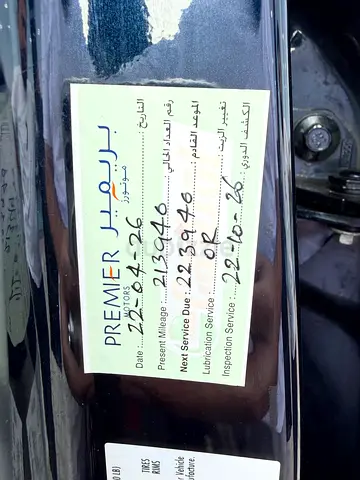 بريمير
موتورز
PREMIER
MOTORS
Date : 22-04-26 التاريخ :
Present Mileage : 213940 رقم العداد الحالي :
Next Service Due : 223940 الموعد القادم :
Lubrication Service : OR تغيير الزيت :
Inspection Service : 22-10-26 الكشف الدوري :
TIRES
RIMS
Vehicle